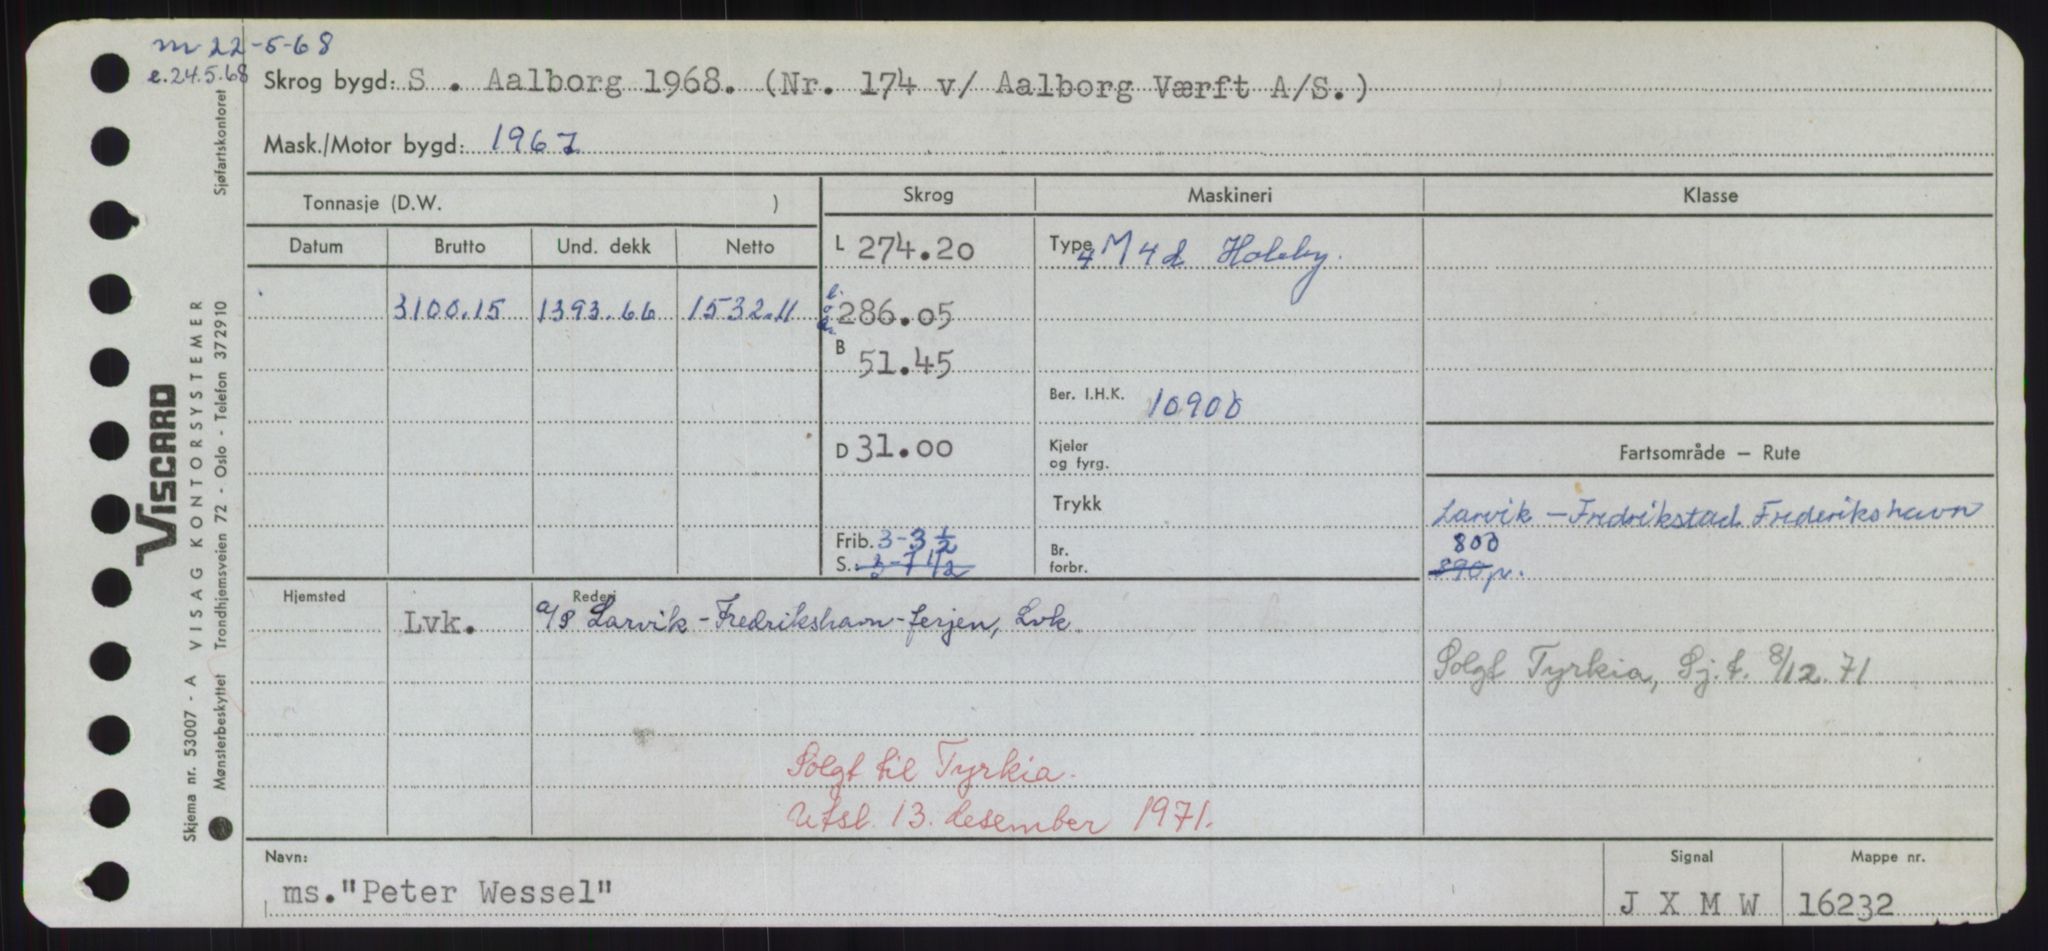 m 22-5-68
e.24.5.68
Skrog bygd: S . Aalborg 1968. (Nr. 174 v/ Aalborg Værft A/S.)
Mask./Motor bygd: 1967
Tonnasje (D.W. )
Skrog Maskineri Klasse
Datum Brutto Und. dekk Netto
L 274.20
Type 4 M 4 d Holeby.
3100.15 1393.66 1532.11
286.05
B 51.45
Ber. I.H.K. 10900
D 31.00
Kjeler og fyrg.
Fartsområde – Rute
Trykk
Larvik - Fredrikstad Frederikshavn
Frib. 3-3 1/2
Br. forbr.
800
S. 3-7 1/2
390 p.
Hjemsted Rederi
Lvk. a/s Larvik-Fredrikshavn-ferjen, Lvk
Solgt Tyrkia, Sj.t. 8/12.71
Solgt til Tyrkia.
Utsl. 13. desember 1971.
Navn: Signal Mappe nr.
ms."Peter Wessel" J X M W 16232
VISCARD
VISAG KONTORSYSTEMER
Skjema nr. 53007 - A
Mønsterbeskyttet Trondhjemsveien 72 - Oslo - Telefon 372910 Sjøfartskontoret